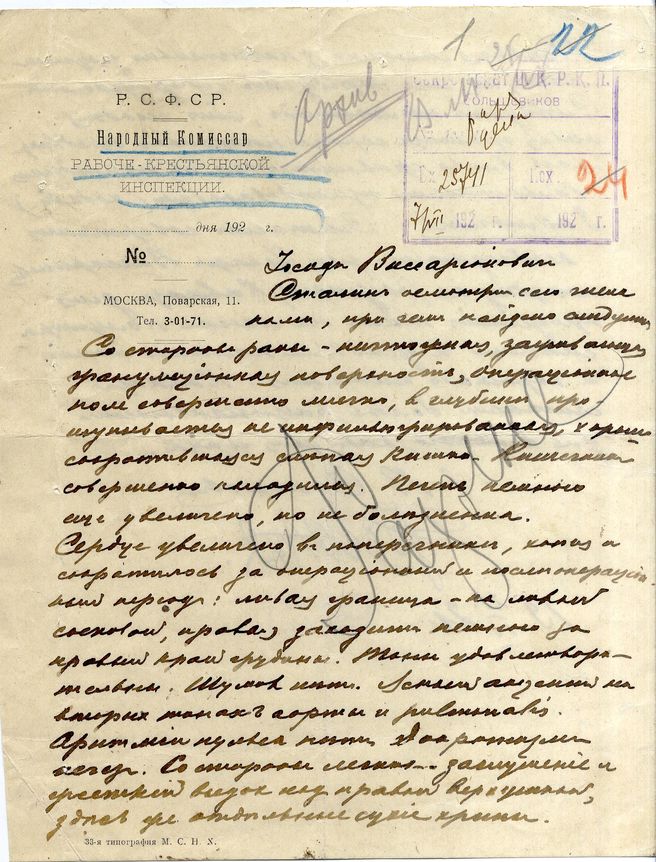 1 22
Р. С. Ф. С. Р.
Народный Комиссар
РАБОЧЕ-КРЕСТЬЯНСКОЙ
ИНСПЕКЦИИ.
дня 192 г.
№
МОСКВА, Поварская, 11.
Тел. 3-01-71.
Архив
Ц. К. Р. К. П.
большевиков
25711
24
7/VII 192 г. 192 г.
Иосиф Виссарионович
Сталин осмотрен сего числа
нами, при чем найдено следующ
Со стороны раны - ничтожная, заживающая
грануляцiонная поверхность, операцiонное
поле совершенно мягко, в глубине про-
щупывается не инфильтрированная, хорошо
сократившаяся слепая кишка. Кишечник
совершенно наладился. Печень немного
еще увеличена, но не болезненна.
Сердце увеличено в поперечнике, хотя и
сократилось за операцiонный и послеоперацiон-
ный период: левая граница - на левой
сосковой, правая заходит немного за
правый край грудины. Тоны удовлетвори-
тельны. Шумов нет. Легкий акцент на
вторых тонах аорты и pulmonalis.
Аритмiи пульса нет.
Со стороны легких - заглушенiе и
жесткiй выдох над правой верхушкой,
здесь же отдельные сухiе хрипы.
33-я типография М. С. Н. Х.